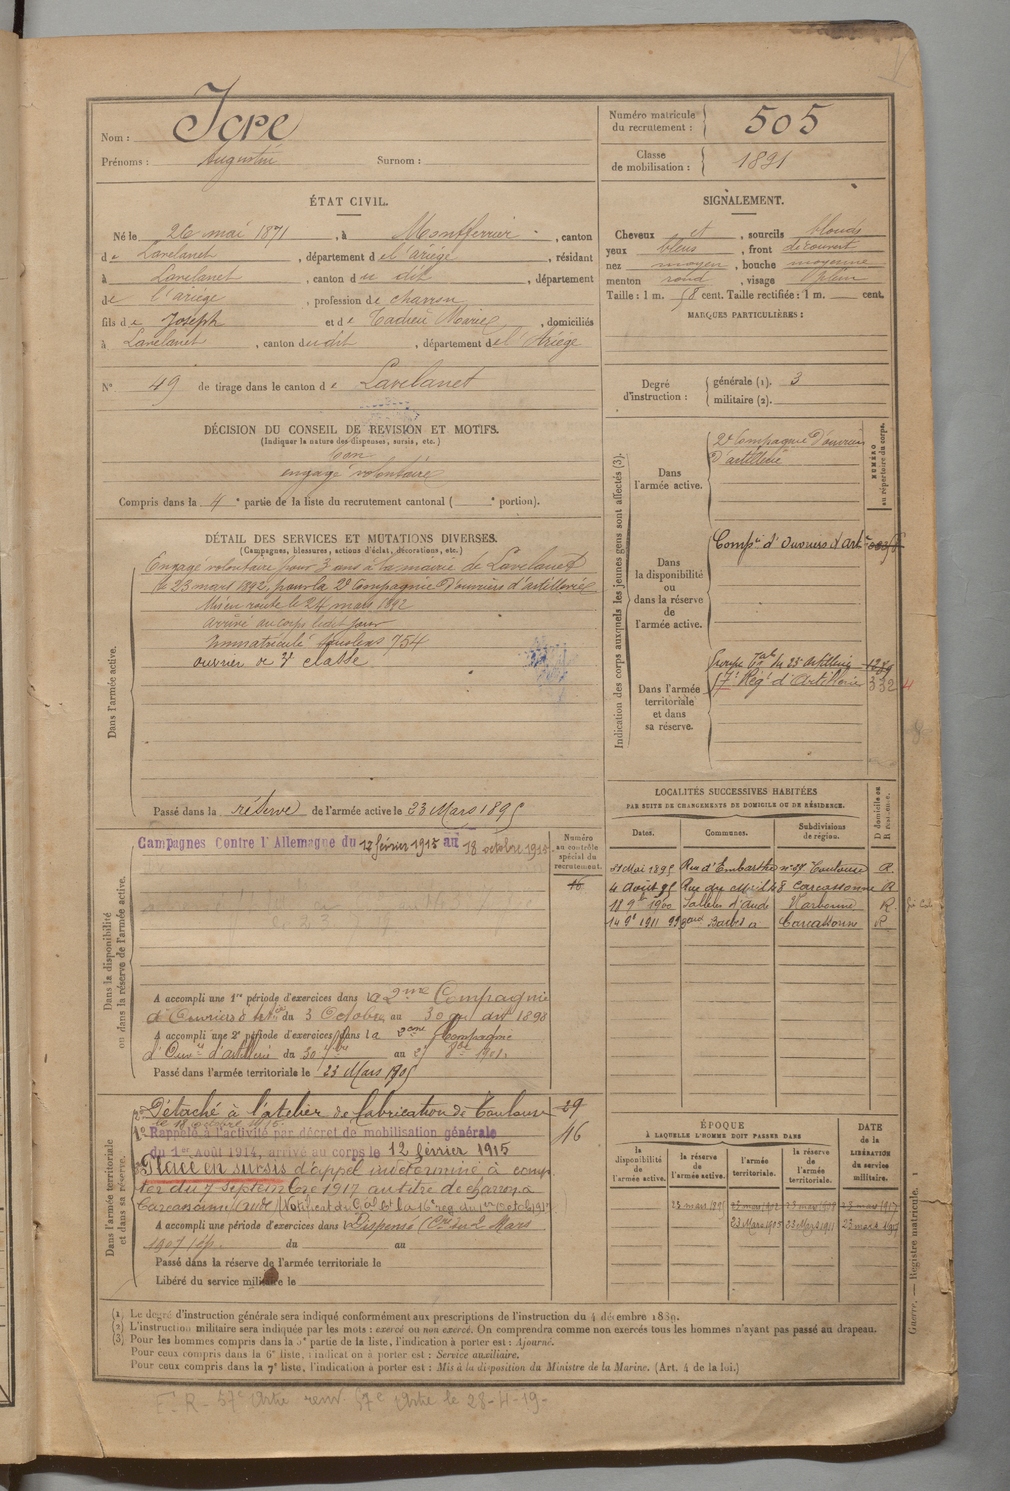 Nom : Icre
Prénoms : Augustin Surnom :
Numéro matricule du recrutement : 505
Classe de mobilisation : 1891
ÉTAT CIVIL.
Né le 26 mai 1871, à Montferrier, canton
de Lavelanet, département de l'ariège, résidant
à Lavelanet, canton du dit, département
de l'ariège, profession de charron
fils de Joseph et de Tadieu Marie, domiciliés
à Lavelanet, canton dudit, département de l'Ariège
N° 49 de tirage dans le canton de Lavelanet
DÉCISION DU CONSEIL DE REVISION ET MOTIFS.
(Indiquer la nature des dispenses, sursis, etc.)
bon
engagé volontaire
Compris dans la 4e partie de la liste du recrutement cantonal ( e portion).
SIGNALEMENT.
Cheveux et, sourcils blonds
yeux bleus, front découvert
nez moyen, bouche moyenne
menton rond, visage plein
Taille : 1 m. 58 cent. Taille rectifiée : 1 m. cent.
MARQUES PARTICULIÈRES :
Degré d'instruction : générale (1). 3
militaire (2).
DÉTAIL DES SERVICES ET MUTATIONS DIVERSES.
(Campagnes, blessures, actions d'éclat, décorations, etc.)
Dans l'armée active.
Engagé volontaire pour 3 ans à la mairie de Lavelanet
le 23 mars 1892, pour la 2e Compagnie d'ouvriers d'artillerie
Mis en route le 24 mars 1892
Arrivé au corps ledit jour
Immatriculé sous le n° 754
ouvrier de 2e classe
Passé dans la réserve de l'armée active le 23 Mars 1895
Indication des corps auxquels les jeunes gens sont affectés (3).
NUMÉRO au répertoire du corps.
Dans l'armée active.
2e Compagnie d'ouvriers
d'artillerie
Dans la disponibilité ou dans la réserve de l'armée active.
Compie d'Ouvriers d'Art
Dans l'armée territoriale et dans sa réserve.
Groupe Tal du 23e Artillerie
57e Régt d'Artillerie 332
LOCALITÉS SUCCESSIVES HABITÉES
PAR SUITE DE CHANGEMENTS DE DOMICILE OU DE RÉSIDENCE.
Dates. Communes. Subdivisions de région. D domicile ou R résidence.
21 Mai 1895 Rue d'Embarthe n° 27 Toulouse R.
4 Août 95 Carcassonne R
18 9bre 1900 Salles d'Aude Narbonne R.
14 9e 1911 Carcassonne R
Dans la disponibilité ou dans la réserve de l'armée active.
Numéro au contrôle spécial du recrutement.
16
Campagnes Contre l'Allemagne du 12 février 1915 au 18 octobre 1915
A accompli une 1re période d'exercices dans la 2me Compagnie
d'Ouvriers d'Artie du 3 Octobre au 30 du dit 1898
A accompli une 2e période d'exercices dans la 2eme Compagnie
d'Ouvers d'artillerie du 30 7bre au 27 8bre 1901
Passé dans l'armée territoriale le 23 Mars 1905
Dans l'armée territoriale et dans sa réserve.
2° Détaché à l'atelier de fabrication de Toulouse 29
le 18 octobre 1915.
1° Rappelé à l'activité par décret de mobilisation générale 46
du 1er Août 1914, arrivé au corps le 12 février 1915
3° Placé en sursis d'appel indéterminé à comp-
ter du 7 Septembre 1917 au titre de charron à
Carcassonne (Aude) (Notificat de Gal Ct la 16e reg. du 1er Octob. 1917)
A accompli une période d'exercices dans la Dispensé (Cre du 2 Mars
1907)
du au
Passé dans la réserve de l'armée territoriale le
Libéré du service militaire le
ÉPOQUE
À LAQUELLE L'HOMME DOIT PASSER DANS
la disponibilité de l'armée active. la réserve de l'armée active. l'armée territoriale. la réserve de l'armée territoriale.
DATE de la LIBÉRATION du service militaire.
23 mars 1895 23 mars 1917
23 Mars 1905 23 Mars 1911 23 mars 1917
(1) Le degré d'instruction générale sera indiqué conformément aux prescriptions de l'instruction du 4 décembre 1889.
(2) L'instruction militaire sera indiquée par les mots : exercé ou non exercé. On comprendra comme non exercés tous les hommes n'ayant pas passé au drapeau.
(3) Pour les hommes compris dans la 5e partie de la liste, l'indication à porter est : Ajourné.
Pour ceux compris dans la 6e liste, l'indication à porter est : Service auxiliaire.
Pour ceux compris dans la 7e liste, l'indication à porter est : Mis à la disposition du Ministre de la Marine. (Art. 4 de la loi.)
Guerre. — Registre matricule. 1
F.R - 57e Artie renv. 57e Artie le 28-4-19-